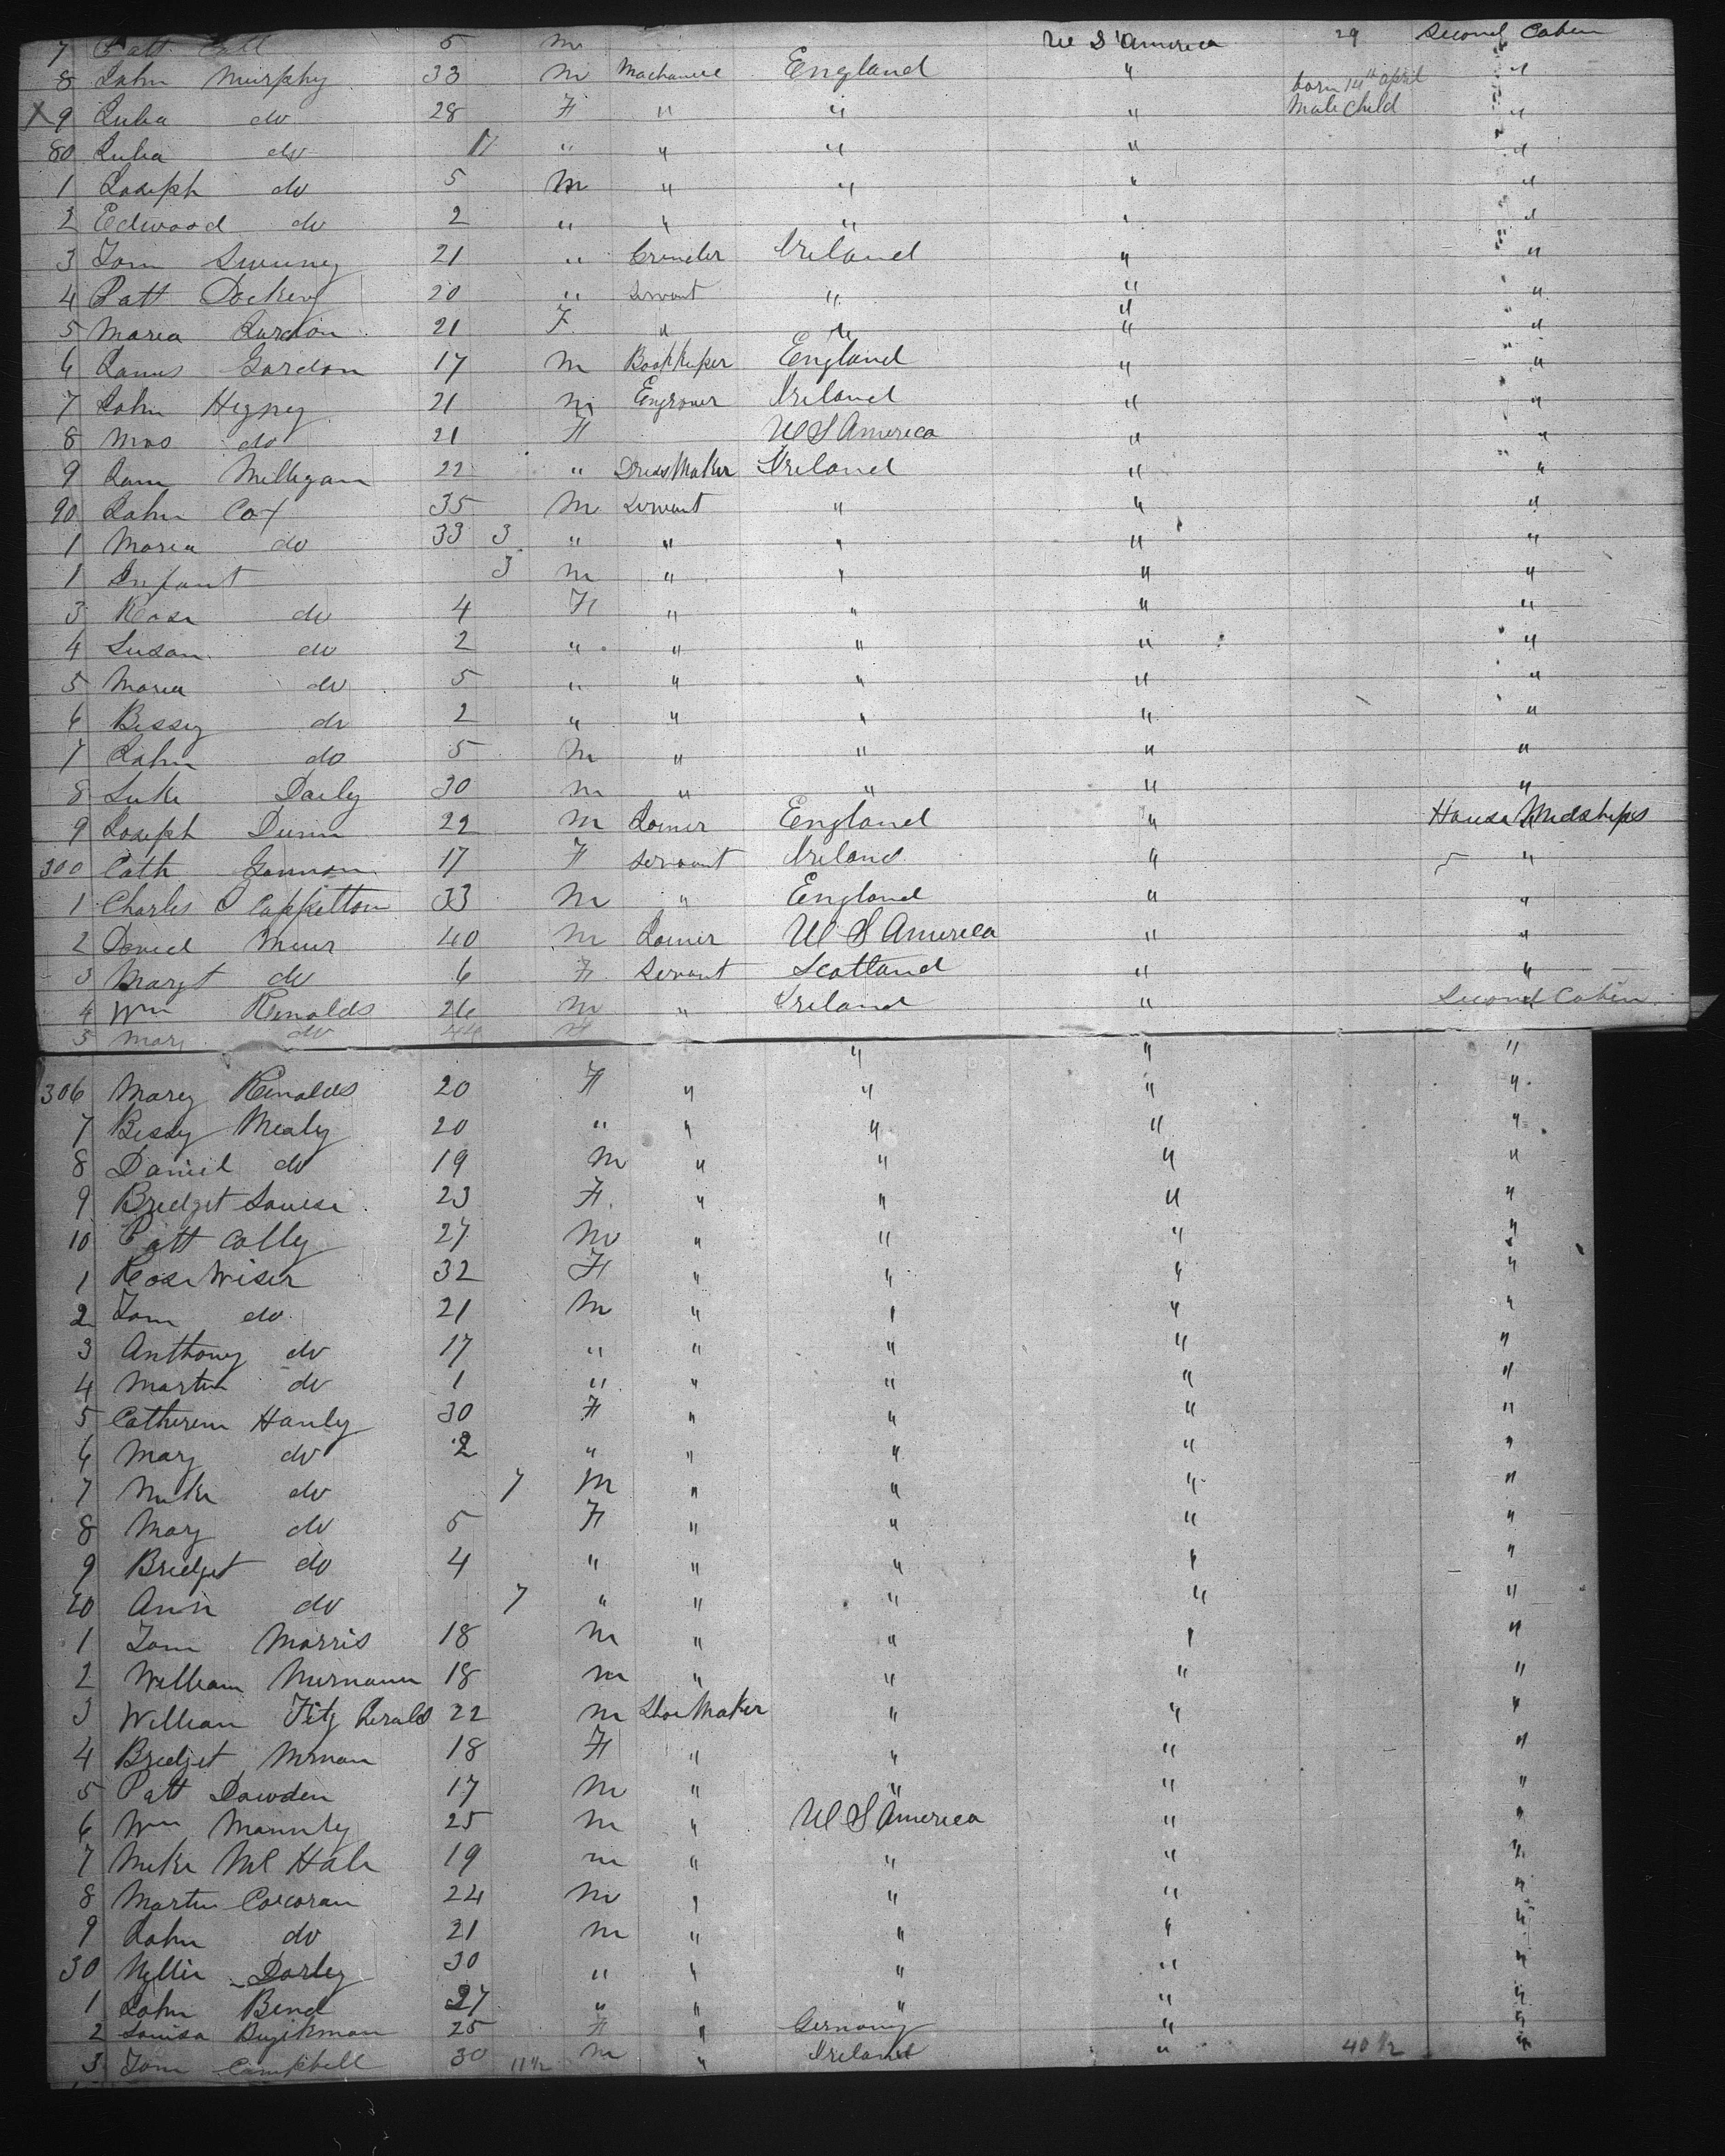 7 Patt Call 5 m U S America 29 Second Caben
8 John Murphy 33 m Machanic England " "
born 14th april
X 9 Julia do 28 F " " " Male Child "
80 Julia do 11 " " " " "
1 Joseph do 5 m " " " "
2 Edwood do 2 " " " " "
3 Tom Sweeney 21 " Grinder Ireland " "
4 Patt Dockery 20 " Servant " " "
5 Maria Jurdon 21 F " " " "
6 James Gordon 17 m Bookkeper England " "
7 John Hegney 21 m Engraver Ireland " "
8 Mrs do 21 F U S America " "
9 Jane Milligan 22 " Dress Maker Ireland " "
90 John Cox 35 m Servant " " "
1 Maria do 33 3 " " " " "
1 Infant 3 m " " " "
3 Rose do 4 F " " " "
4 Susan do 2 " " " " "
5 Maria do 5 " " " " "
6 Bessey do 2 " " " " "
7 John do 5 m " " " "
8 Luke Daily 30 m " " " "
9 Joseph Dunn 22 m Joiner England " House Midships
300 Cath Gannon 17 F Servant Ireland " "
1 Charles C Cappitton 33 m " England " "
2 David Muir 40 m Joiner U S America " "
3 Margt do 6 F Servant Scotland " "
4 Wm Renolds 26 m " Ireland " Second Caben
5 Mary do " " "
306 Mary Renolds 20 F " " " "
7 Bessy Mealy 20 " " " " "
8 Daniel do 19 m " " " "
9 Bridget Louisa 23 F " " " "
10 Patt Colly 27 m " " " "
1 Rose Wiser 32 F " " " "
2 Tom do 21 m " " " "
3 Anthony do 17 " " " " "
4 Martin do 1 " " " " "
5 Catheren Hanly 30 F " " " "
6 Mary do 2 " " " " "
7 Mike do 7 m " " " "
8 Mary do 5 F " " " "
9 Bridget do 4 " " " " "
20 Ann do 7 " " " " "
1 Tom Morris 18 m " " " "
2 William Murnann 18 m " " " "
3 William Fitz Gerald 22 m Shoe Maker " " "
4 Bridget Mrnan 18 F " " " "
5 Patt Dowden 17 m " " " "
6 Wm Mannly 25 m " U S America " "
7 Mike Mc Hale 19 m " " " "
8 Martin Corcoran 24 m " " " "
9 John do 21 m " " " "
30 Nellie Darley 30 " " " " "
1 John Bend 27 " " " " "
2 Louisa 25 F " Germany " "
3 Tom Campbell 30 11 1/2 m " Ireland " 40 1/2 "